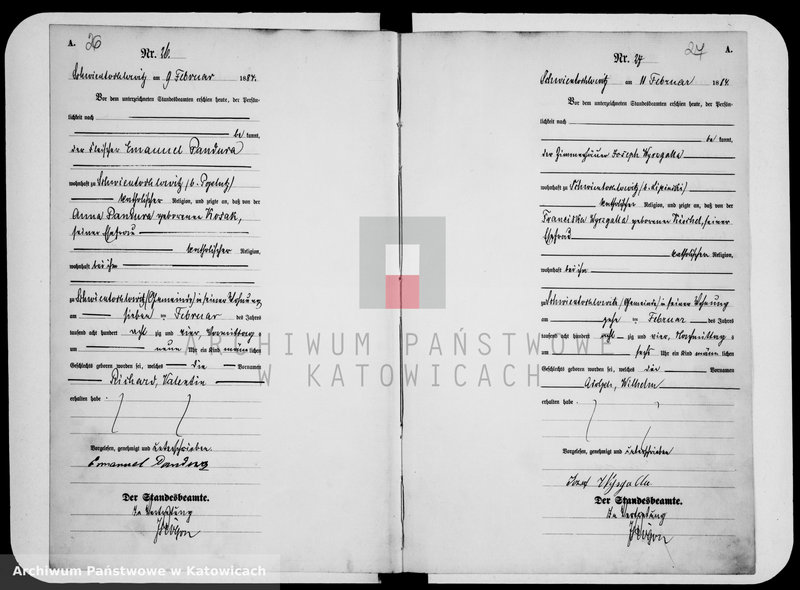 A. 26
Nr. 26
Schwientochlowitz am 9 Februar 1884.
Vor dem unterzeichneten Standesbeamten erschien heute, der Persön-
lichkeit nach
be kannt,
der Fleischer Emanuel Pandura
wohnhaft zu Schwientochlowitz
katholischer Religion, und zeigte an, daß von der
Anna Pandura geborenen Kozak,
seiner Ehefrau
katholischer Religion,
wohnhaft bei ihm
zu Schwientochlowitz (Gemeinde) in seiner Wohnung
am sieben ten Februar des Jahres
tausend acht hundert acht zig und vier, Vormittag s
um neun Uhr ein Kind männ lichen
Geschlechts geboren worden sei, welches die Vornamen
Richard, Valentin
erhalten habe.
Vorgelesen, genehmigt und unterschrieben
Emanuel Pandura
Der Standesbeamte.
In Vertretung
27 A.
Nr. 27
Schwientochlowitz am 11 Februar 1884.
Vor dem unterzeichneten Standesbeamten erschien heute, der Persön-
lichkeit nach
be kannt,
der Zimmerhäuer Joseph
wohnhaft zu Schwientochlowitz
katholischer Religion, und zeigte an, daß von der
Franciska geborenen seiner
Ehefrau
katholischen Religion,
wohnhaft bei ihm
zu Schwientochlowitz (Gemeinde) in seiner Wohnung
am zehn ten Februar des Jahres
tausend acht hundert acht zig und vier, Nachmittag s
um sechs Uhr ein Kind männ lichen
Geschlechts geboren worden sei, welches die Vornamen
Adolph, Wilhelm
erhalten habe.
Vorgelesen, genehmigt und unterschrieben
Der Standesbeamte.
In Vertretung
ARCHIWUM PAŃSTWOWE
W KATOWICACH
Archiwum Państwowe w Katowicach